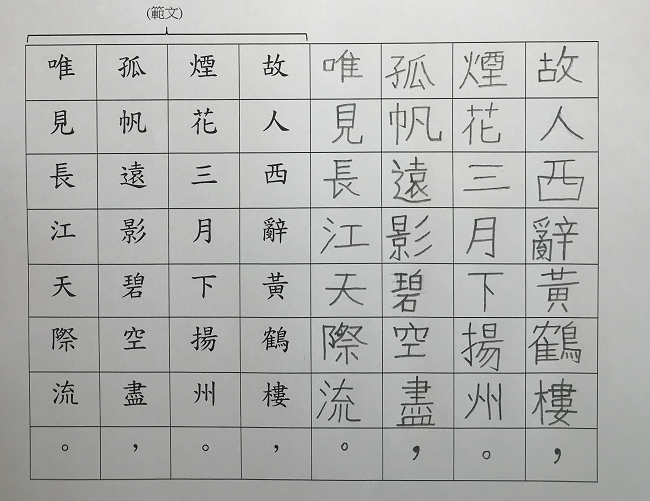 (範文)
故人西辭黃鶴樓，
煙花三月下揚州。
孤帆遠影碧空盡，
唯見長江天際流。
故人西辭黃鶴樓，
煙花三月下揚州。
孤帆遠影碧空盡，
唯見長江天際流。